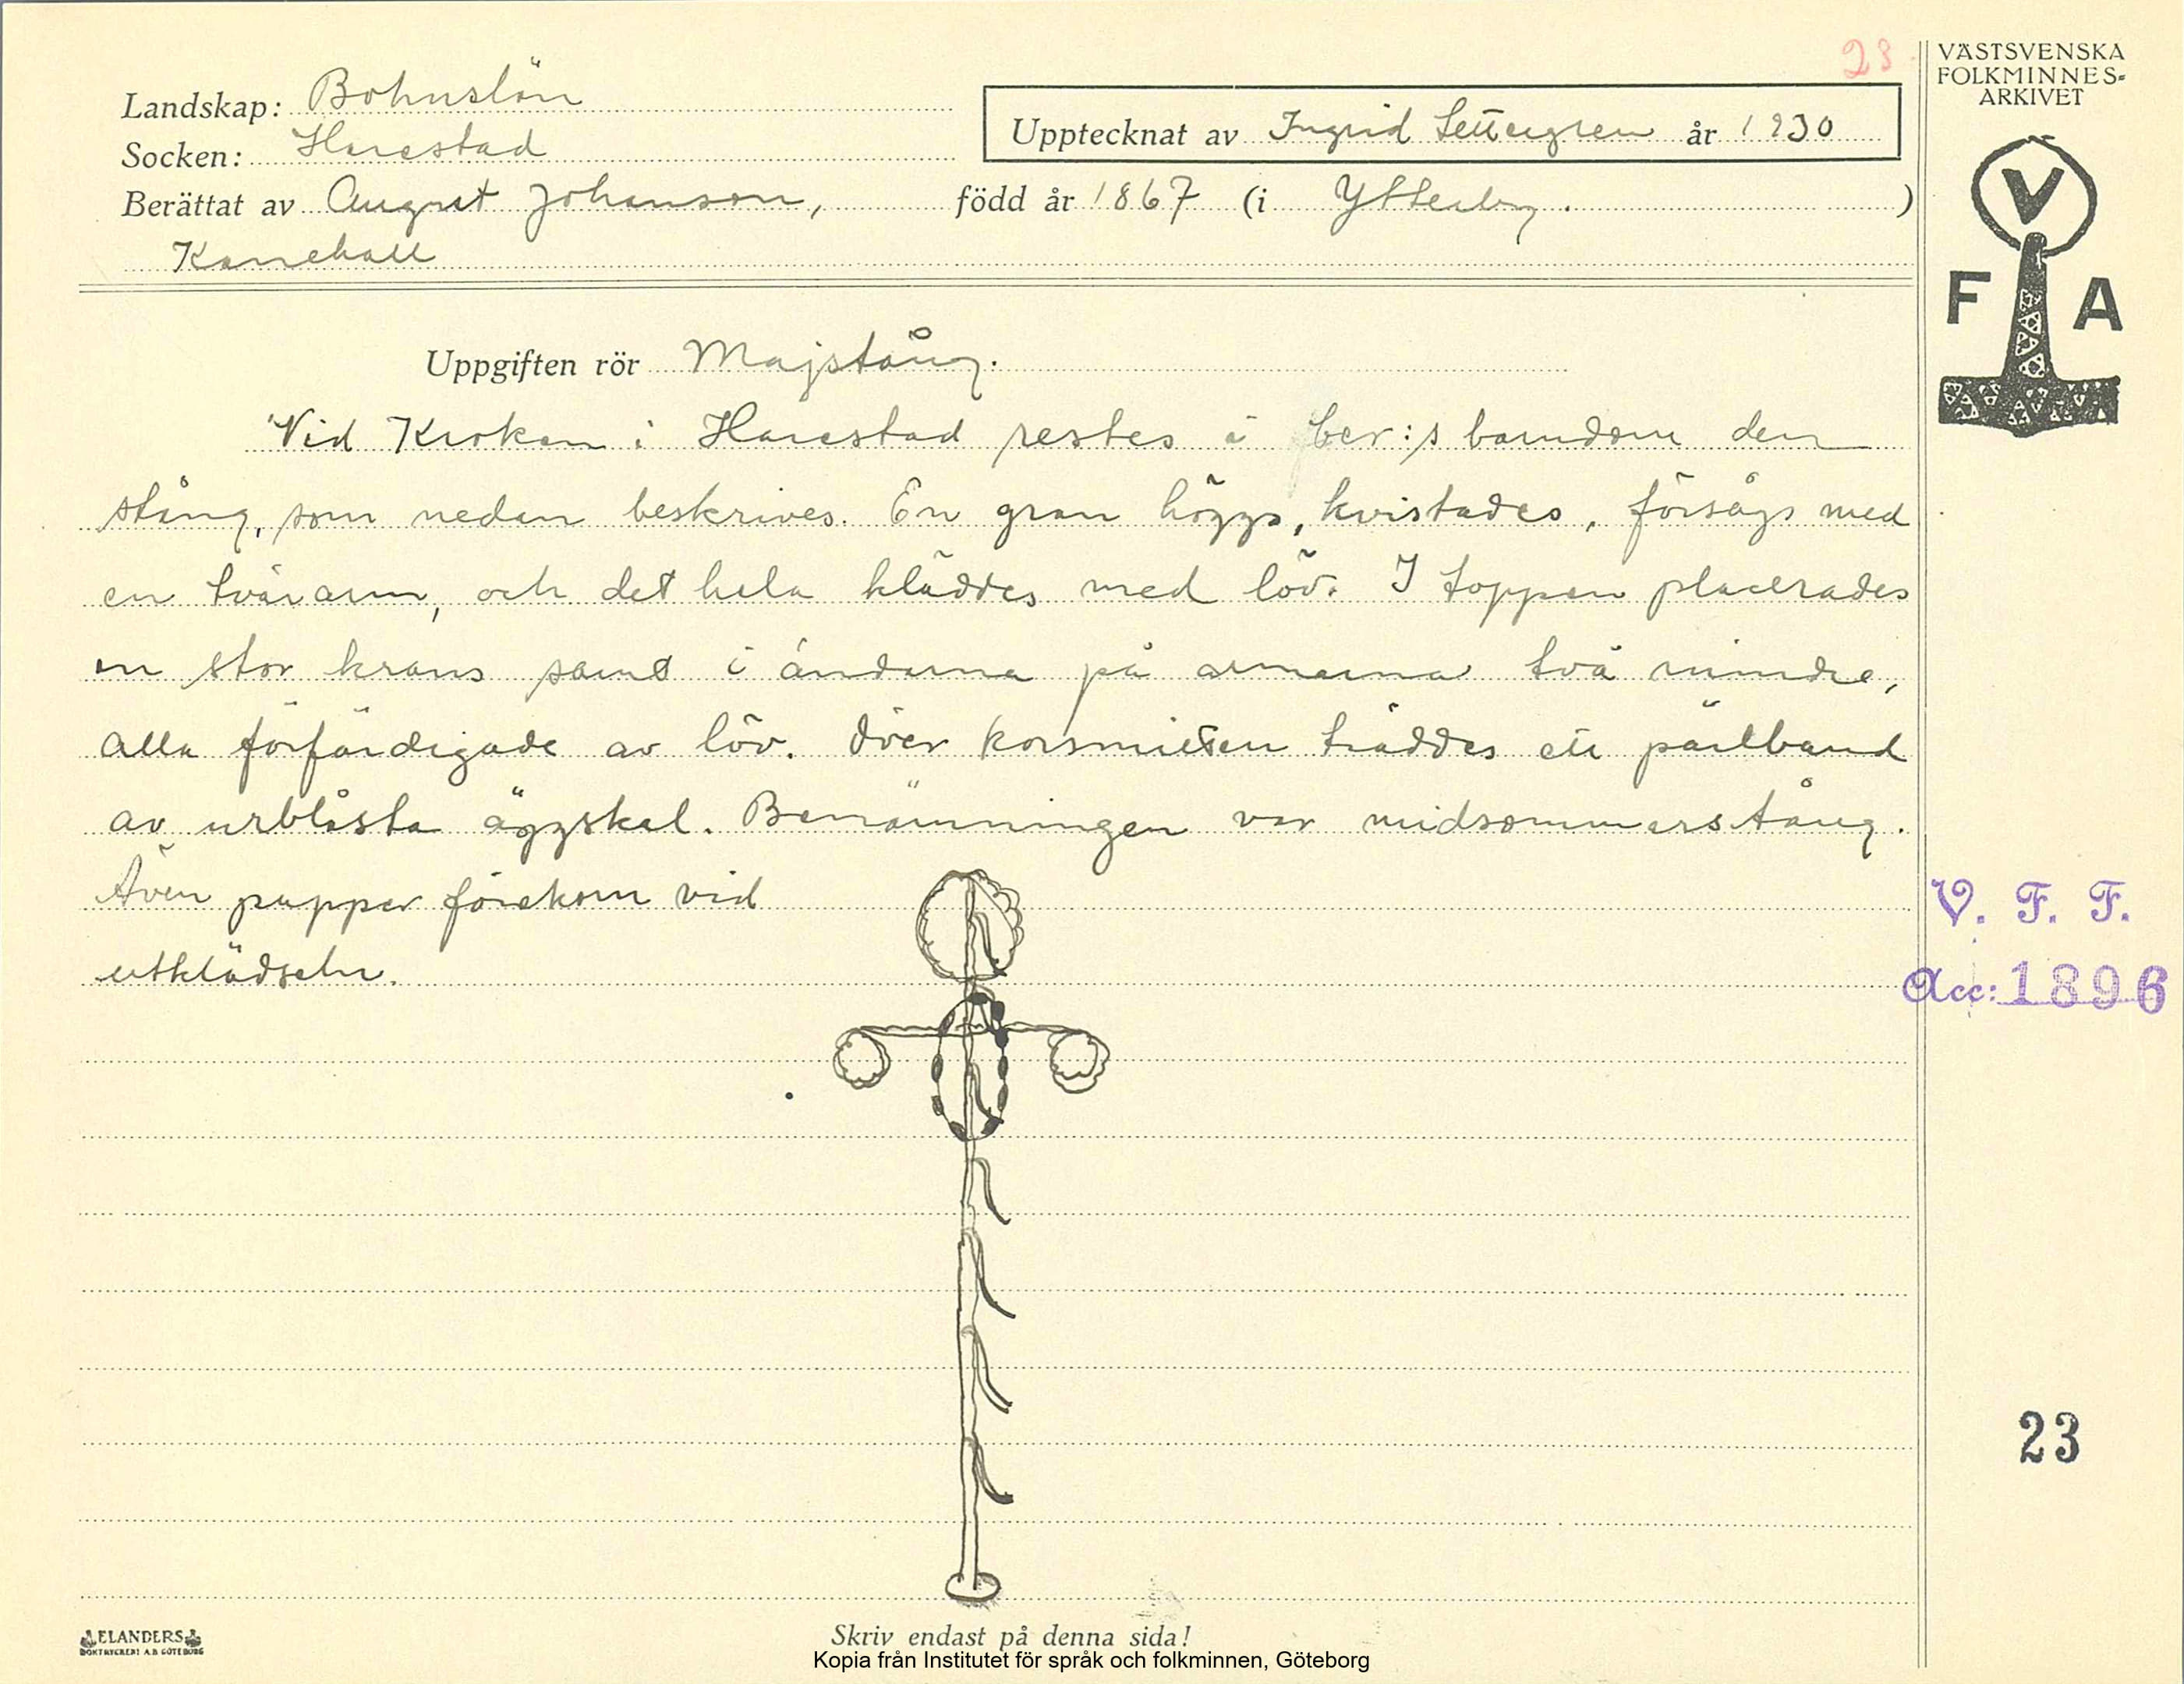 23
VÄSTSVENSKA
FOLKMINNES-
ARKIVET
Landskap: Bohuslän
Upptecknat av Ingrid Settergren år 1930
Socken: Harestad
Berättat av August Johanson, född år 1867 (i Ytterby.)
Kanehall
V
F A
Uppgiften rör Majstång.
Vid Kroken i Harestad restes i ber:s barndom den
stång, som nedan beskrives. En gran höggs, kvistades, försågs med
en tvärarm, och det hela kläddes med löv. I toppen placerades
en stor krans samt i ändarna på armarna två mindre,
alla förfärdigade av löv. Över korsmitten träddes ett pärlband
av urblåsta äggskal. Benämningen var midsommarstång.
Även puppor förekom vid
utklädseln.
V. F. F.
Acc: 1896
23
ELANDERS
BOKTRYCKERI A.B. GÖTEBORG
Skriv endast på denna sida!
Kopia från Institutet för språk och folkminnen, Göteborg